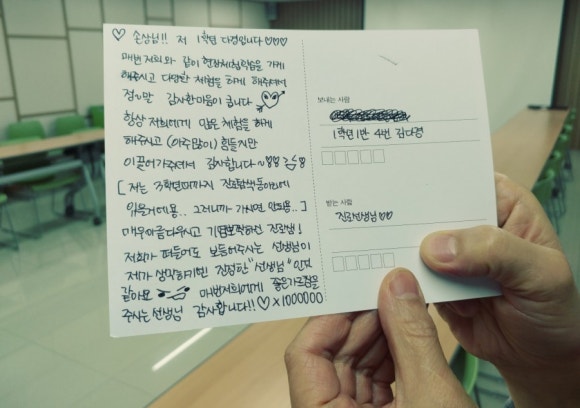 ♡ 손상님!! 저 1학년 다경입니다 ♡♡♡
매번 저희와 같이 현장체험학습을 가게
해주시고 다양한 체험을 하게 해주셔서
정~말 감사한마음이 큽니다
항상 저희에게 많은 체험을 하게
해주시고 (아주많이) 힘들지만
이끌어가주셔서 감사합니다~
[ 저는 3학년때까지 진로탐색동아리에
있을거에용.. 그러니까 가시면 안돼용.. ]
매우아름다우시고 기염뽀짝하신 진로쌤!
저희가 떠들어도 보듬어주시는 선생님이
제가 생각하기엔 진정한 "선생님" 인것
같아요 매번저희에게 좋은가르침을
주시는선생님 감사합니다!! ♡ x 1000000
보내는 사람
1학년 1반 4번 김다경
받는 사람
진로선생님 ♡♡